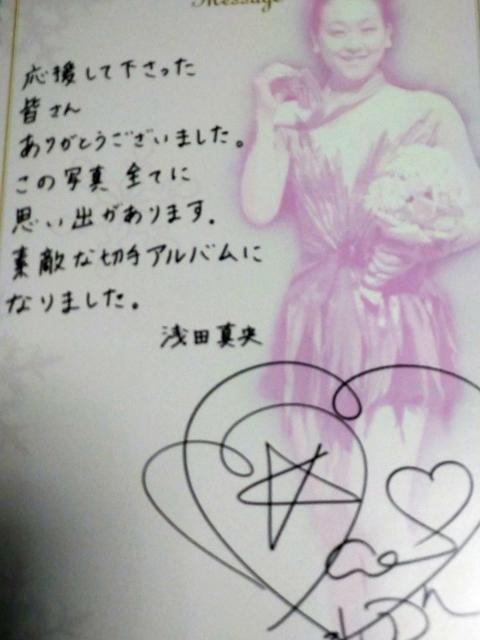 Message
応援して下さった
皆さん
ありがとうございました。
この写真 全てに
思い出があります。
素敵な切手アルバムに
なりました。
浅田真央